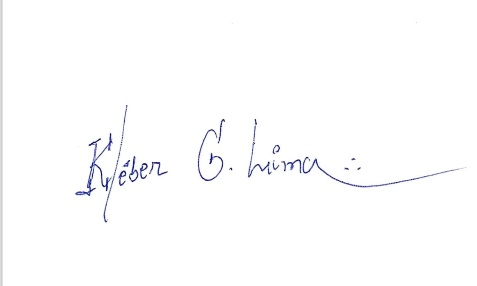 Kléber G. Lima ∴